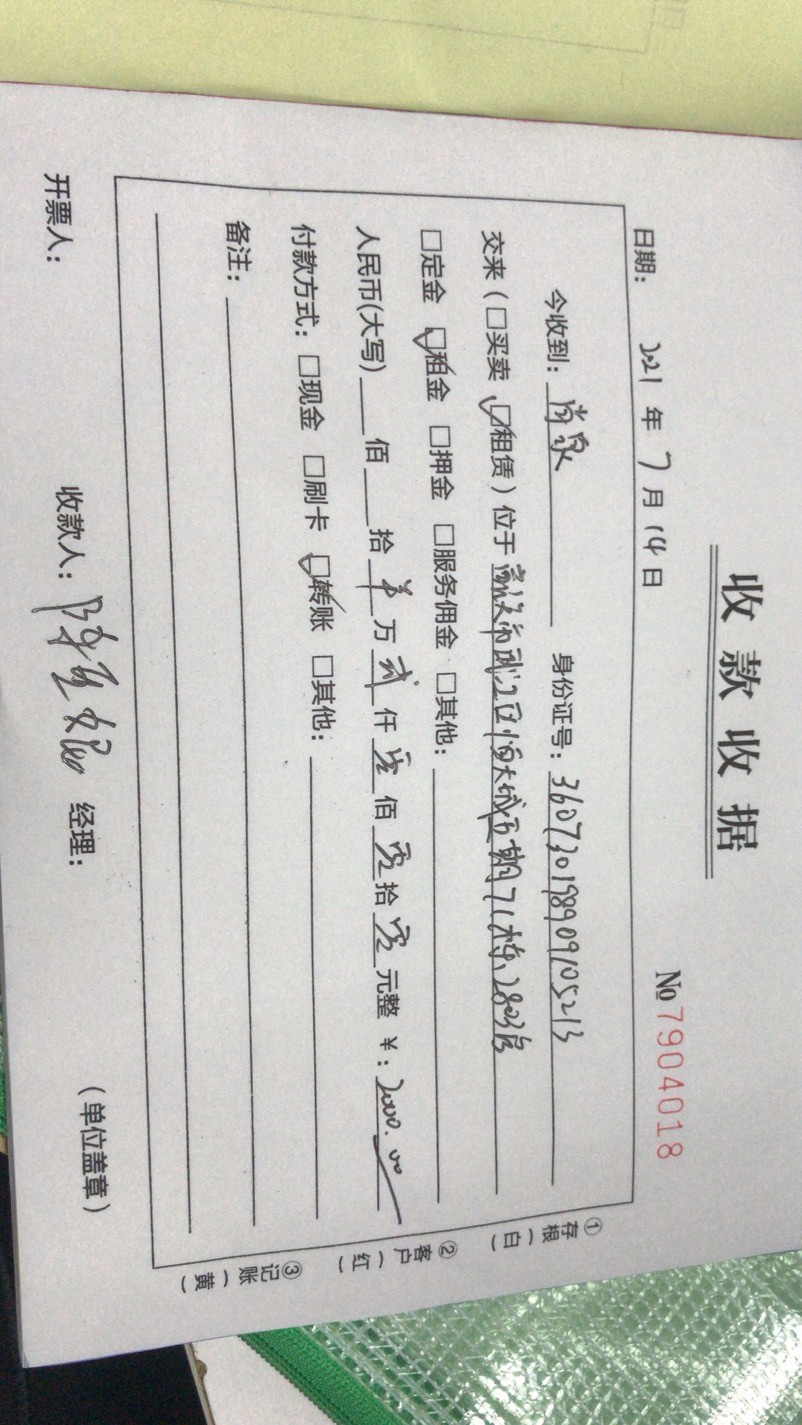 收款收据
No 7904018
日期： 2021 年 7 月 14 日
今收到： 身份证号：360730198909105213
交来（□买卖 ☑租赁）位于 区恒大城五期71栋2803房
□定金 ☑租金 □押金 □服务佣金 □其他：
人民币(大写) 佰 拾 万 贰 仟 零 佰 零 拾 零 元整 ￥：2000.00
付款方式：□现金 □刷卡 ☑转账 □其他：
备注：
开票人： 收款人： 经理： （单位盖章）
①存根（白）
②客户（红）
③记账（黄）